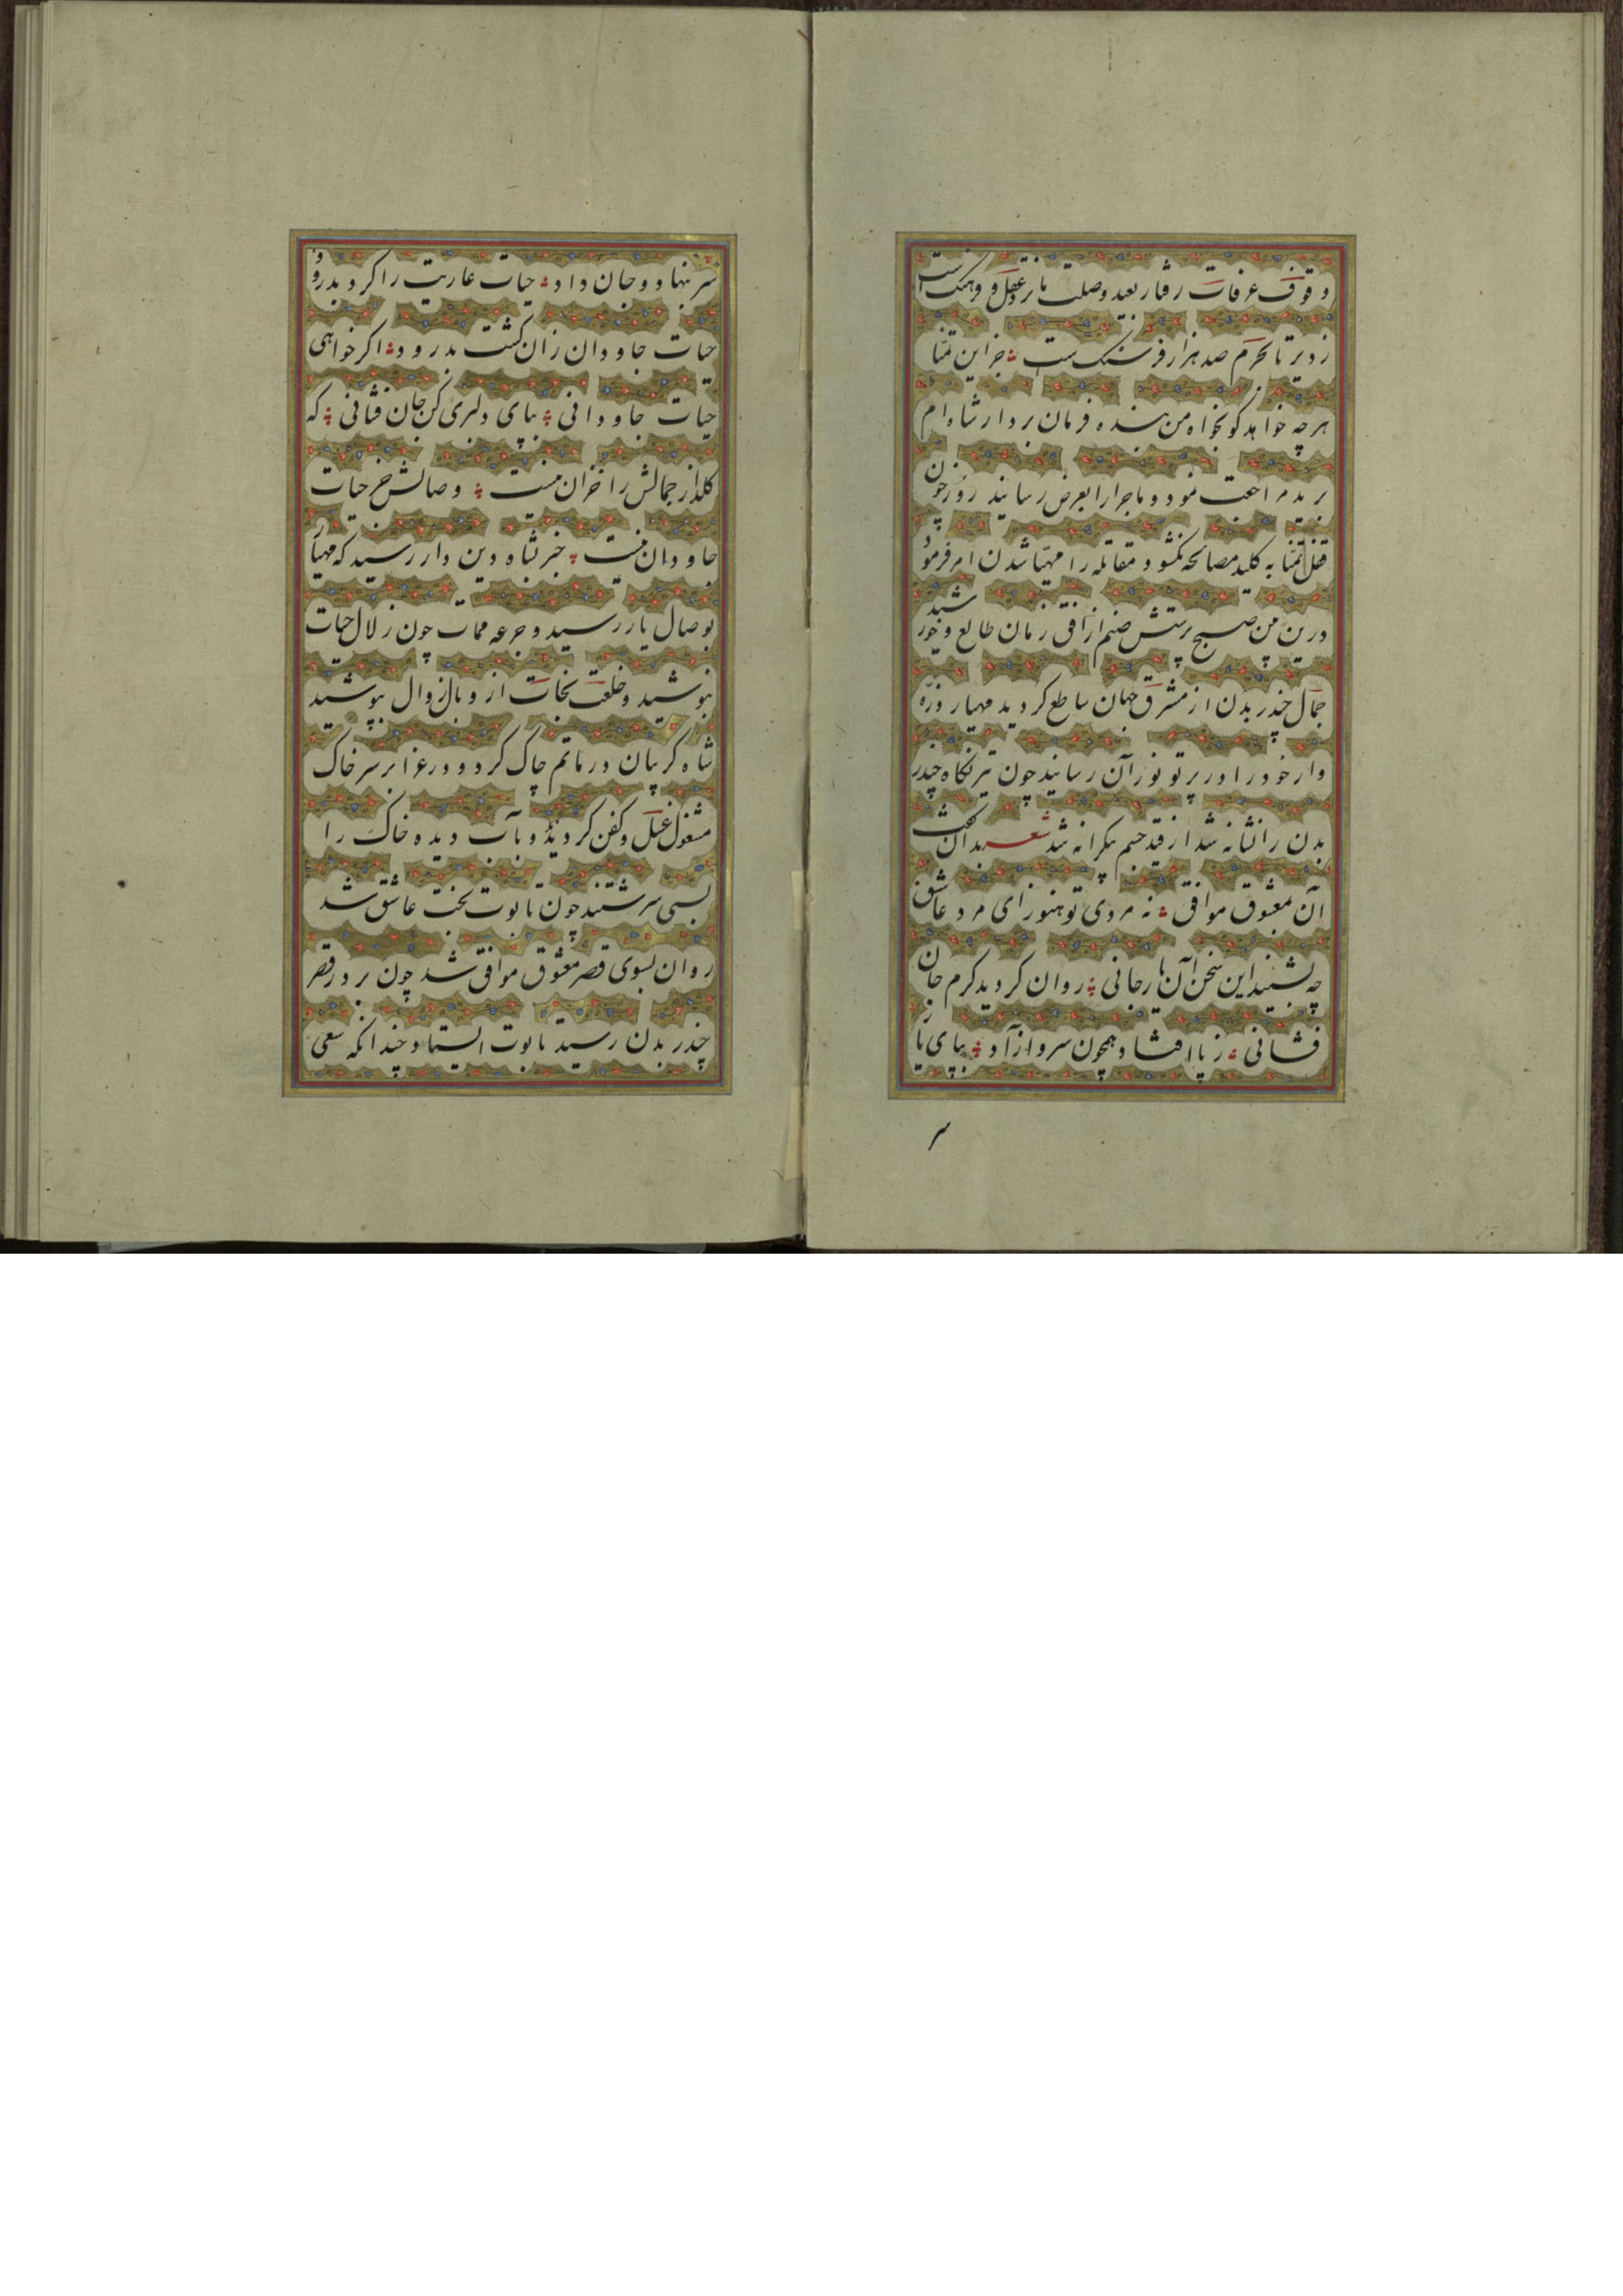 وقوف عرفات رفتار بعید وصلت ما نزد عقل و فرهنک است
ز دیر تا بحرم صد هزار فرسنک ست جز این تمنا
هرچه خواهد کو بخواه من بنده فرمان بردار شاه ام
برید مراجعت نمود و ماجرا را بعرض رسانید روز چون
قفل تمنا به کلید مصالحه نکشود مقابله را مهیا شدن امر فرمود
درین من صبح پرستش صنم از افق زمان طالع و خورشید
جمال چندر بدن از مشرق جهان ساطع کردید مهیار ذره
وار خود را در پرتو نور آن رسانید چون تیر نکاه چندر
بدن را نشانه شد از قد خسم بکرانه شد شعر بدان کفت
آن معشوق موافق نه مردی تو هنوز ای مرد عاشق
چه بشنید این سخن آن یار جانی روان کردید کرم جان
فشانی ز پا افتاد همچون سرو آزاد بپای یار
سر
سر بنهاد و جان داد حیات عاریت را کرد بدرود
حیات جاودان زان کشت بدرود اکر خواهی
حیات جاودانی بپای دلبری کن جان فشانی که
کلذار جمالش را خزان نیست وصالش جز حیات
جاودان نیست خبر بشاه دین دار رسید که مهیار
بوصال یار رسید و جرعه ممات چون زلال حیات
بنوشید و خلعت نجات از وبال زوال بپوشید
شاه کریبان در ماتم چاک کرد و در عزا بر سر خاک
مشغول غسل و کفن کردید و بآب دیده خاک را
بسی سرشتند چون تابوت تخت عاشق شد
روان بسوی قصر معشوق موافق شد چون بر در قصر
چندر بدن رسید تابوت ایستاد چندانکه سعی